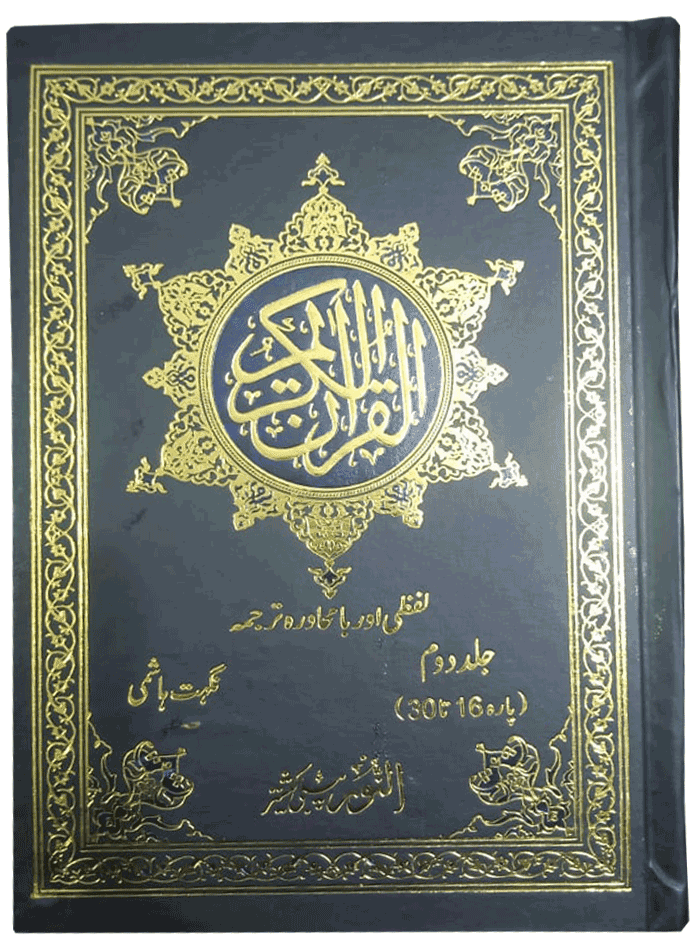 القرآن الكريم
لفظی اور بامحاورہ ترجمہ
جلد دوم
(پارہ 16 تا 30)
نگہت ہاشمی
النور پبلیکیشنز